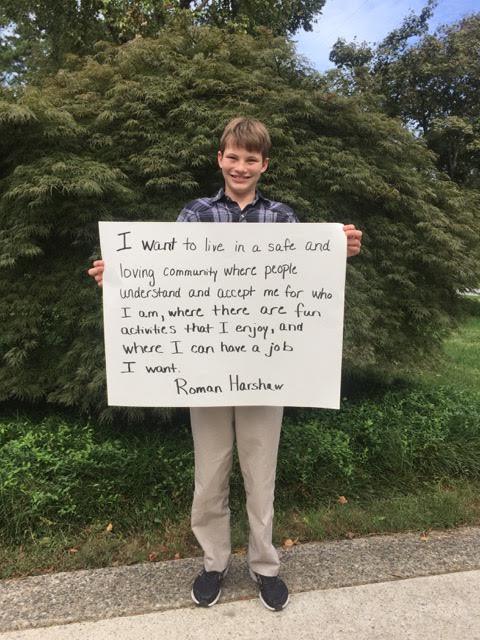 I want to live in a safe and
loving community where people
understand and accept me for who
I am, where there are fun
activities that I enjoy, and
where I can have a job
I want.
Roman Harshaw